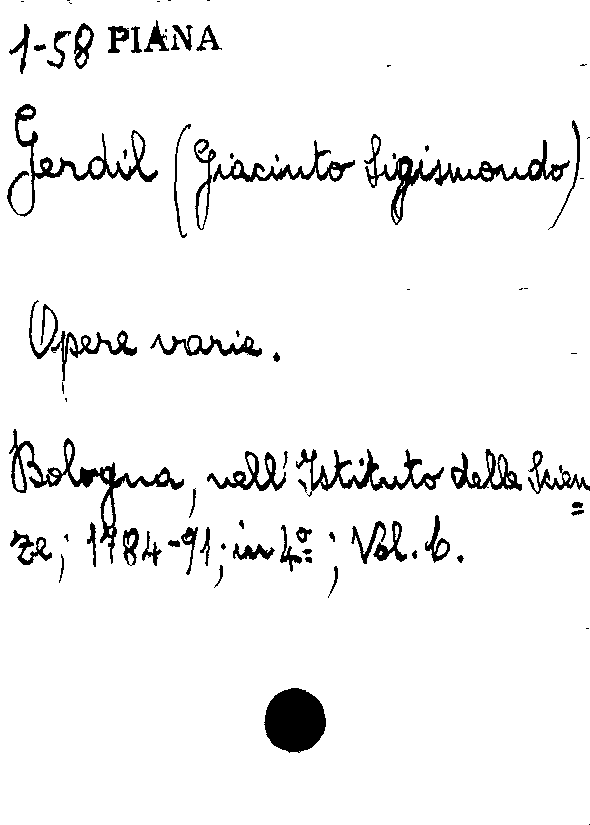 1-58 PIANA
Gerdil (Giacinto Sigismondo)
Opere varie.
Bologna, nell'Istituto delle Scien=
ze; 1784-91; in 4º; Vol. 6.